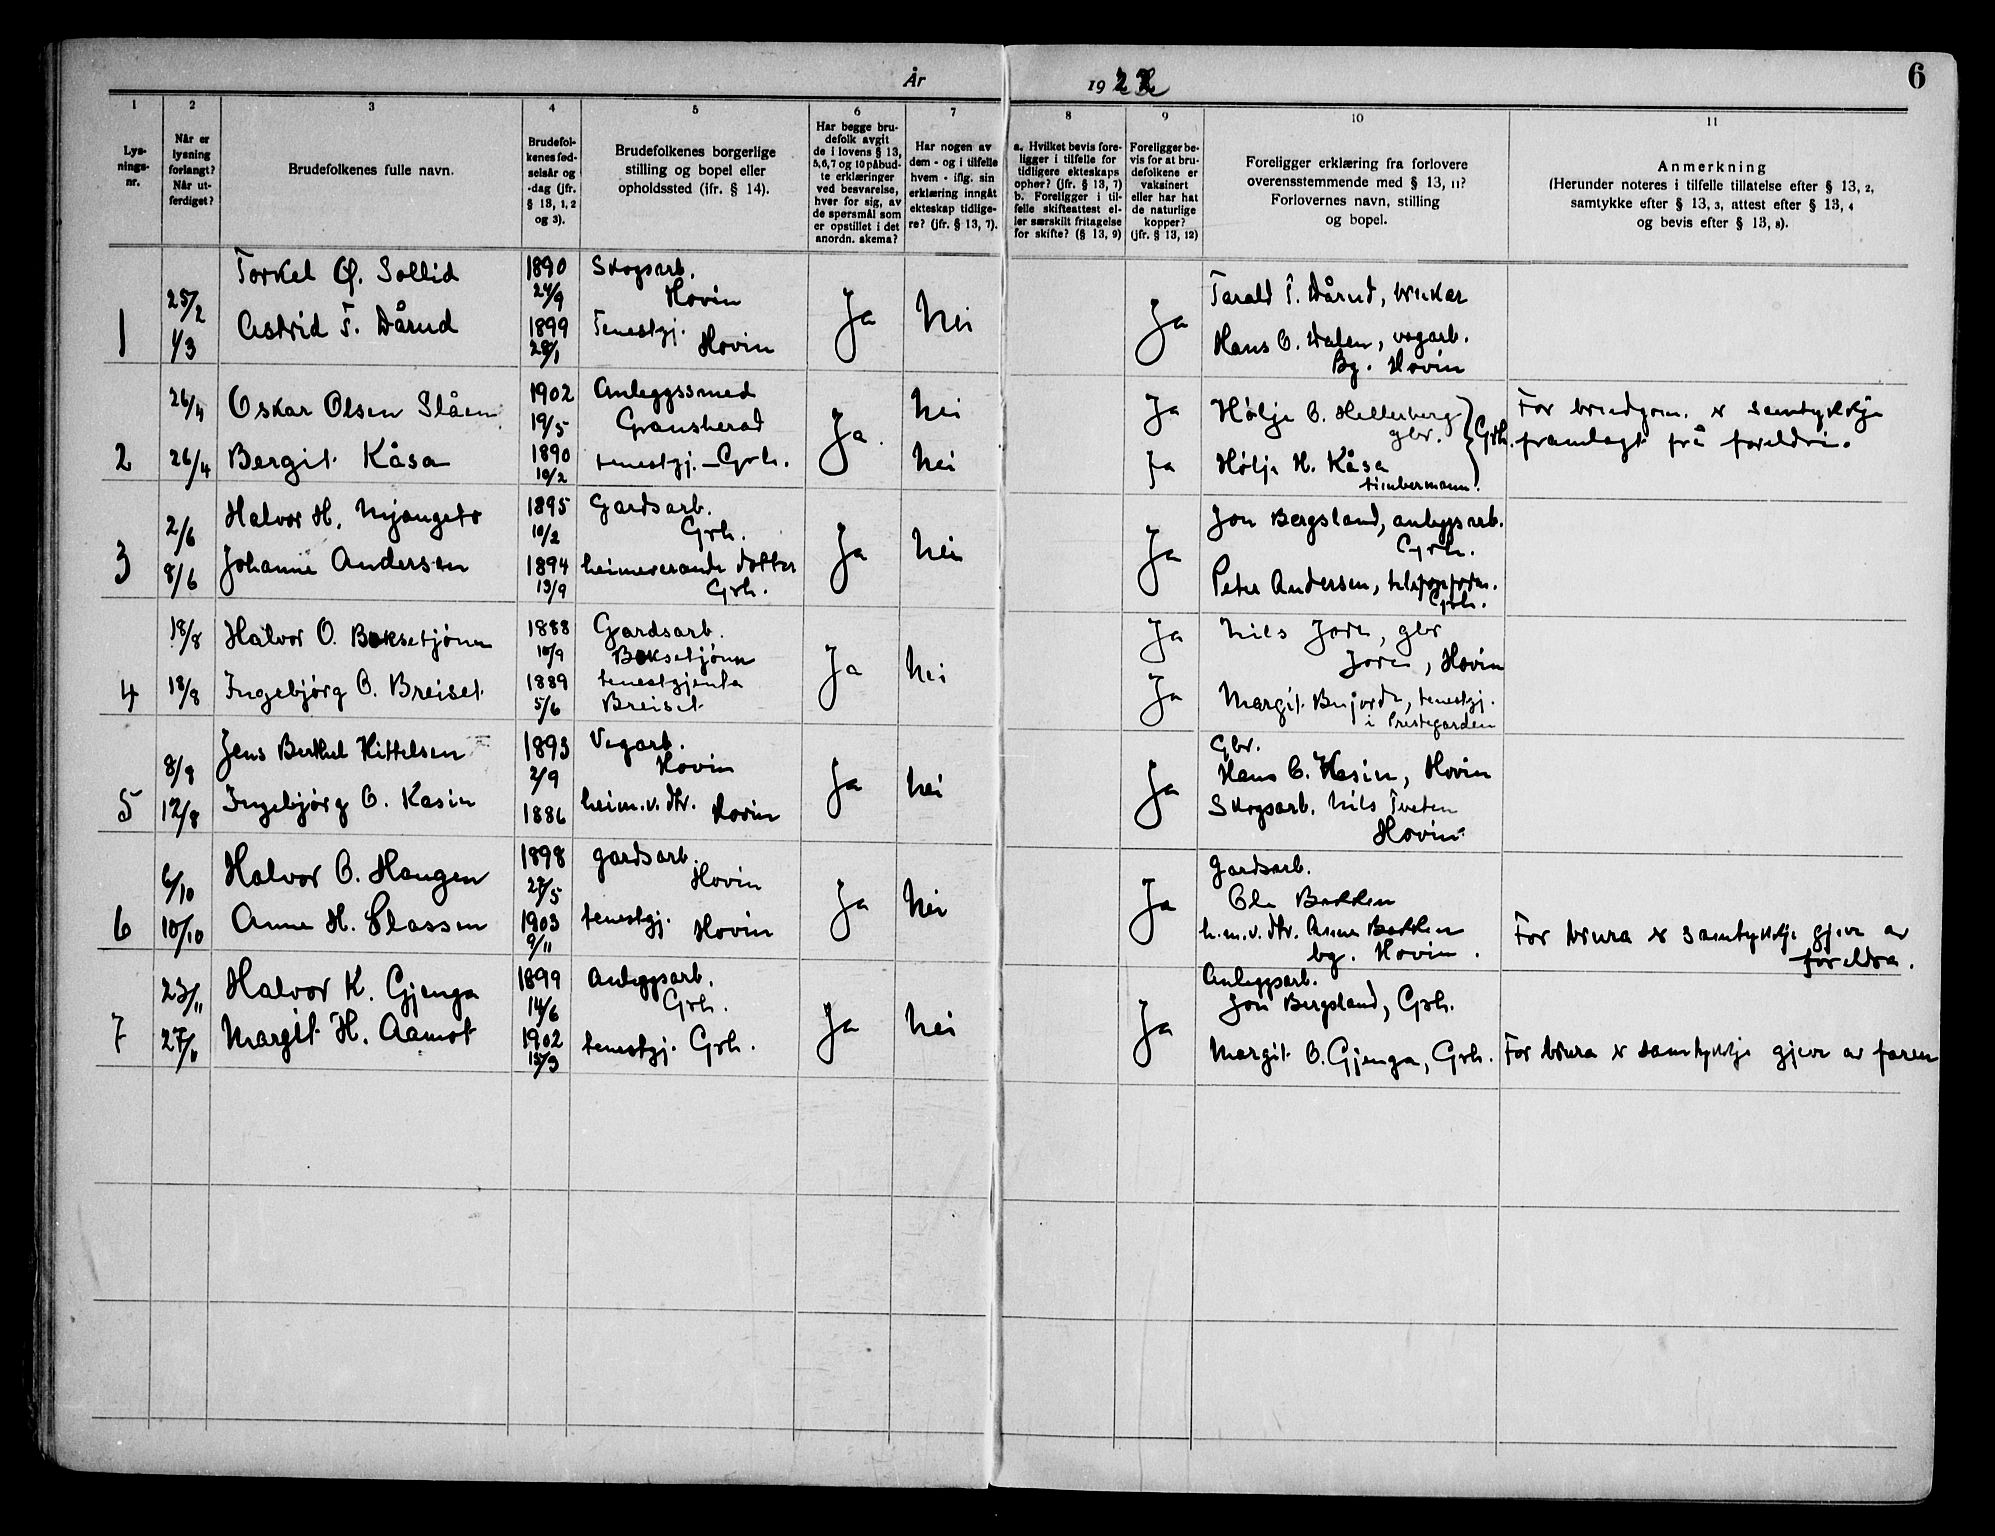 År 1922
6
1
2
3
4
5
6
7
8
9
10
11
Lys-
nings-
nr.
Når er
lysning
forlangt?
Når ut-
ferdiget?
Brudefolkenes fulle navn.
Brudefol-
kenes fød-
selsår og
-dag (jfr.
§ 13, 1, 2
og 3).
Brudefolkenes borgerlige
stilling og bopel eller
opholdssted (ifr. § 14).
Har begge bru-
defolk avgit
de i lovens § 13,
5, 6, 7 og 10 påbud-
te erklæringer
ved besvarelse,
hver for sig, av
de spørsmål som
er opstillet i det
anordn. skema?
Har nogen av
dem - og i tilfelle
hvem - iflg. sin
erklæring inngått
ekteskap tidlige-
re? (jfr. § 13, 7).
a. Hvilket bevis fore-
ligger i tilfelle for
tidligere ekteskaps
ophør? (jfr. § 13, 7)
b. Foreligger i til-
felle skifteattest el-
ler særskilt fritagelse
for skifte? (§ 13, 9)
Foreligger be-
vis for at bru-
defolkene er
vaksinert
eller har hat
de naturlige
kopper?
(jfr. § 13, 12)
Foreligger erklæring fra forlovere
overensstemmende med § 13, 11?
Forlovernes navn, stilling
og bopel.
Anmerkning
(Herunder noteres i tilfelle tillatelse efter § 13, 2,
samtykke efter § 13, 3, attest efter § 13, 4
og bevis efter § 13, 8).
1
25/2
1/3
Torkel Ø. Sollid
Astrid T. Dårud
1890
24/9
1899
28/1
Skogsarb.
Hovin
Tenestgj.
Hovin
Ja
Nei
Ja
Tarald T. Dårud, brukar
Hans O. Dalen, vegarb.
Bg. Hovin
2
26/4
26/4
Oskar Olsen Slåen
Bergit Kåsa
1902
19/5
1890
10/2
Anleggssmed
Gransherad
tenestgj. - Grh.
Ja.
Nei
Nei
Ja
Ja
Hølje O. Hellerberg
gbr.
Hølje H. Kåsa
timbermann.
Grh.
For brudgom. er samtykkje
framlagt frå foreldri.
3
2/6
8/6
Halvor H. Mjaugeto
Johanne Andersen
1895
10/2
1894
13/9
Gardsarb.
Grh.
heimeverande dotter
Grh.
Ja
Nei
Ja
Jon Bergsland, anleggsarb.
Grh.
Peter Andersen,
Grh.
4
18/8
18/8
Halvor O. Boksetjønn
Ingebjørg O. Breiset
1888
10/9
1889
5/6
Gardsarb.
Boksetjønn
tenestgjenta
Breiset
Ja
Nei
Ja
Ja
Nils Jore, gbr
Jore, Hovin
Margit Bujorde, tenestgj.
i Prestegarden
5
8/8
12/8
Jens Berthel Kittelsen
Ingebjørg O. Kasin
1893
2/9
1886
Vegarb.
Hovin
heim.v. dtr. Hovin
Ja
Nei
Ja
Gbr.
Hans O. Kasin, Hovin
Skogsarb. Nils Tveten
Hovin
6
6/10
10/10
Halvor O. Haugen
Anne H. Classen
1898
27/5
1903
9/11
gardsarb.
Hovin
tenestgj.
Hovin
Ja
Nei
Ja
Gardsarb.
Ole Bakken
h.m.v. dtr. Anne Bakken
bg. Hovin.
For brura er samtykkje gjeve av
foreldra.
7
23/11
27/11
Halvor K. Gjenga
Margit H. Aamot
1899
14/6
1902
15/3
Anleggsarb.
Grh.
tenestgj. Grh.
Ja
Nei
Ja
Anleggsarb.
Jon Bergsland, Grh.
Margit O. Gjenga, Grh.
For brura er samtykkje gjeve av faren